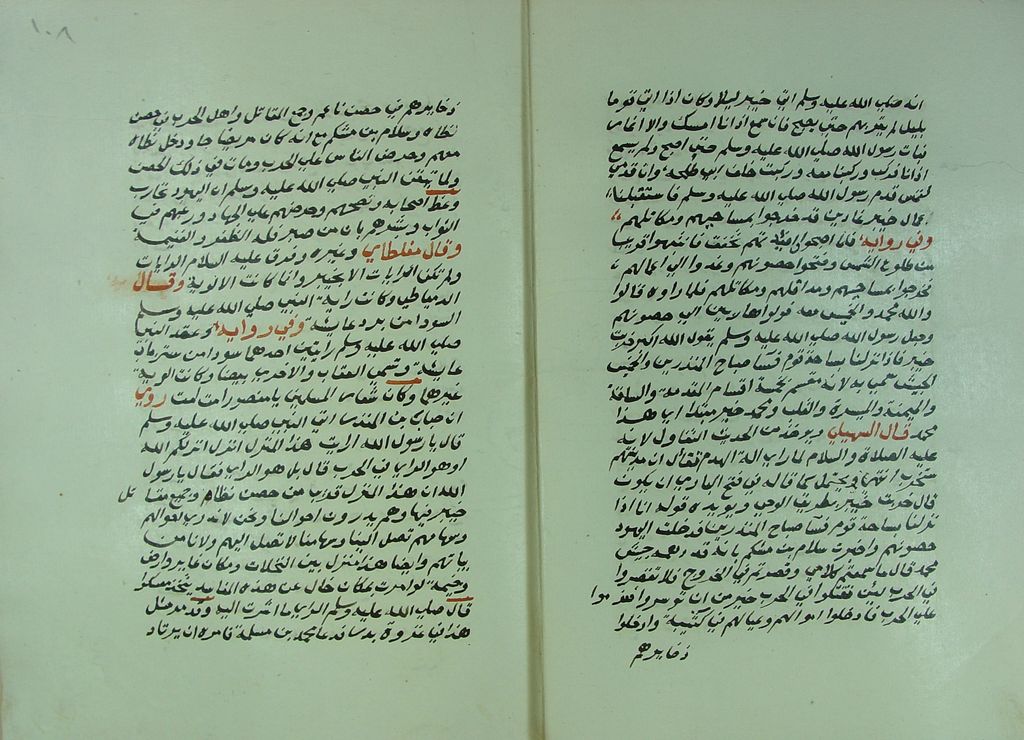 انه صلى الله عليه وسلم اتى خيبر ليلا وكان اذا اتى قوما
بليل لم يغر بهم حتى يصبح فان سمع اذانا امسك والا اغار
فبات رسول الله صلى الله عليه وسلم حتى اصبح ولم يسمع
اذانا فركب وركبنا معه وركبت خلف ابي طلحة وان قدمي
لتمس قدم رسول الله صلى الله عليه وسلم فاستقبلنا
عمال خيبر غادين قد خرجوا بمساحيهم ومكاتلهم
وفي رواية فلما اصبحوا
من طلوع الشمس وفتحوا حصونهم وغدوا الى اعمالهم
فخرجوا بمساحيهم ومكاتلهم فلما راوه قالوا
والله محمد والخميس معه فولوا هاربين الى حصونهم
وجعل رسول الله صلى الله عليه وسلم يقول الله اكبر خربت
خيبر فاذا نزلنا بساحة قوم فسا صباح المنذرين والخميس
الجيش سمي به لانه مقسم بخمسة اقسام المقدمة والساقة
والميمنة والميسرة والقلب ومحمد خبر مبتدا اي هذا
محمد قال السهيلي ويوخذ من الحديث التفاول لانه
عليه الصلاة والسلام لما راى الة الهدم تفال ان مدينتهم
ستخرب انتهى ويحتمل كما قاله في فتح الباري ان يكون
قال خربت خيبر بطريق الوحي ويويده قوله انا اذا
نزلنا بساحة قوم فسا صباح المنذرين فدخلت اليهود
حصونهم واخبرت سلام بن مشكم بانه قد جيش
محمد قال ما سمعتم كلامي وقصرتم في الخروج فلا تقصروا
في الحرب لئن تقتلوا في الحرب خير من ان توسروا فعزموا
على الحرب فادخلوا اموالهم وعيالهم في كتيبة وادخلوا
ذخايرهم
١٠٨
ذخايرهم في حصن ناعم وجمع المقاتل واهل الحرب في حصن
نطاة وسلام بن مشكم مع انه كان مريضا جا ودخل نطاة
معهم وحرض الناس على الحرب ومات في ذلك الحصن
ولما تيقن النبي صلى الله عليه وسلم ان اليهود تحارب
وعظ اصحابه ونصحهم وحرضهم على الجهاد ورغبهم في
الثواب وبشرهم بان من صبر فله الظفر والغنيمة
وقال مغلطاي وغيره وفرق عليه السلام الرايات
ولم تكن الرايات الا بخيبر وانما كانت الالوية وقال
الدمياطي وكانت راية النبي صلى الله عليه وسلم
السودا من برد عايشة وفي رواية وعقد النبي
صلى الله عليه وسلم رايتين احدهما سودا من ستر باب
عايشة وتسمى العقاب والاخرى بيضا وكانت الوية
غيرهما وكان شعار المسلمين يا منصور امت امت روي
ان حباب بن المنذر اتى النبي صلى الله عليه وسلم
قال يا رسول الله ارايت هذا المنزل انزل انزلكه الله
او هو الراي في الحرب قال بل هو الراي فقال يا رسول
الله ان هذا المنزل قريب من حصن نطاة وجميع مقاتل
خيبر فيها وهم يدرون احوالنا ونحن لا ندري احوالهم
وسهامهم تصل الينا وسهامنا لا تصل اليهم ولا نامن
بياتهم وايضا هذا منزل بين النخلات ومكان غاير وارض
وخيمة لو امرت بمكان خال عن هذه المفاسد نتخذه معسكرا
قال صلى الله عليه وسلم الراي ما اشرت اليه وقد مر مثل
هذا في غزوة بدر فدعا محمد بن مسلمة فامره ان يرتاد